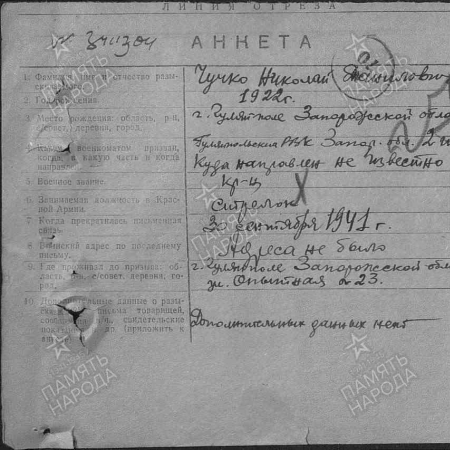 ЛИНИЯ ОТРЕЗА
АНКЕТА
1. Фамилия, имя и отчество разы-
скиваемого.
Чучко Николай
2. Год рождения.
1922 г.
3. Место рождения: область, р-н,
сельсовет, деревня, город.
г. Гуляйполе Запорожской
4. Каким военкоматом призван,
когда, в какую часть и когда
направлен.
Гуляйпольским РВК Запор. обл.
Куда направлен не известно
5. Военное звание.
Кр-ц
6. Занимаемая должность в Крас-
ной Армии.
Стрелок
7. Когда прекратилась письменная
связь.
30 сентября 1941 г.
8. Воинский адрес по последнему
письму.
Адреса не было
9. Где проживал до призыва: об-
ласть, сельсовет, деревня, го-
род.
г. Гуляйполе Запорожской обл
ул. Опытная 23.
10. Дополнительные данные о разы-
товарищей,
свидетельские
(приложить к
Дополнительных данных нет
ПАМЯТЬ
НАРОДА